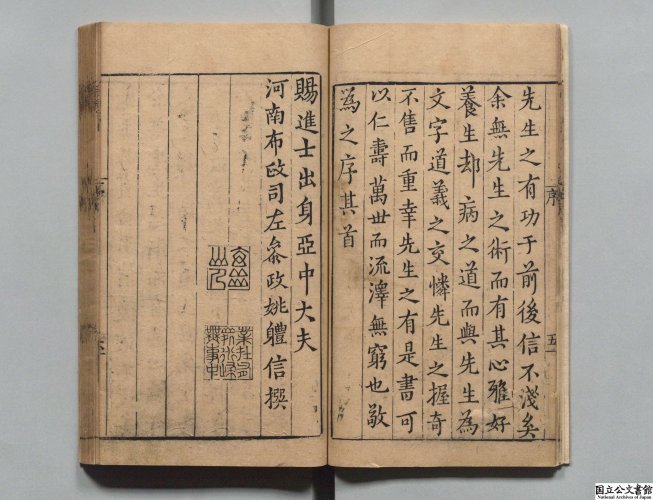 先生之有功于前後信不淺矣
余無先生之術而有其心雅好
養生却病之道而與先生為
文字道義之交憐先生之握奇
不售而重幸先生之有是書可
以仁壽萬世而流澤無窮也敬
為之序其首
序
五
賜進士出身亞中大夫
河南布政司左叅政姚體信撰
国立公文書館
National Archives of Japan